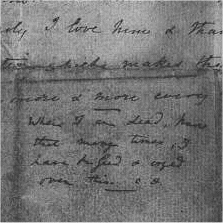 I love him & than
makes the
more & more every
When I am dead, know
that many times, I
have kissed & cried
over this. C. D.